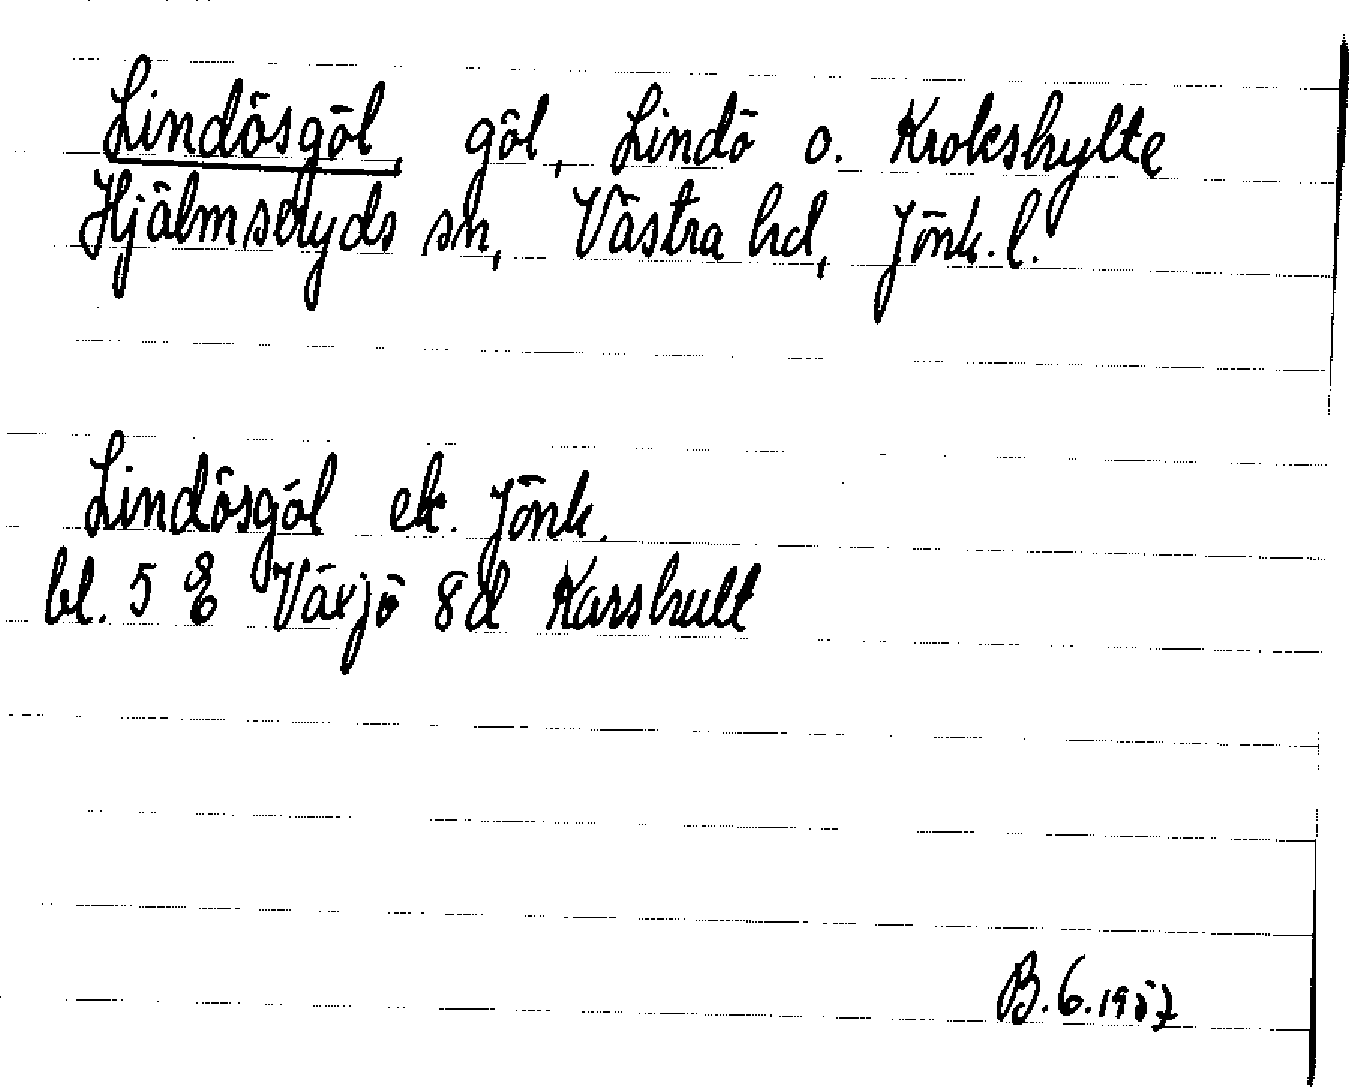 Lindösgöl, göl, Lindö o. Krokshylte
Hjälmseryds sn, Västra hd, Jönk. l.
Lindösgöl ek. Jönk.
bl. 5 E Växjö 8d Karshult
B.G. 1957